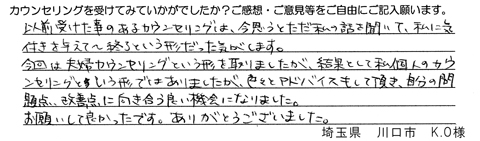 カウンセリングを受けてみていかがでしたか?ご感想・ご意見等をご自由にご記入願います。
以前受けた事のあるカウンセリングは、今思うとただ私の話を聞いて、私に気
付きを与えて終るという形だった気がします。
今回は夫婦カウンセリングという形を取りましたが、結果として私個人のカウ
ンセリングという形ではありましたが、色々とアドバイスもして頂き、自分の問
題点、改善点に向き合う良い機会になりました。
お願いして良かったです。ありがとうございました。
埼玉県 川口市 K.O様